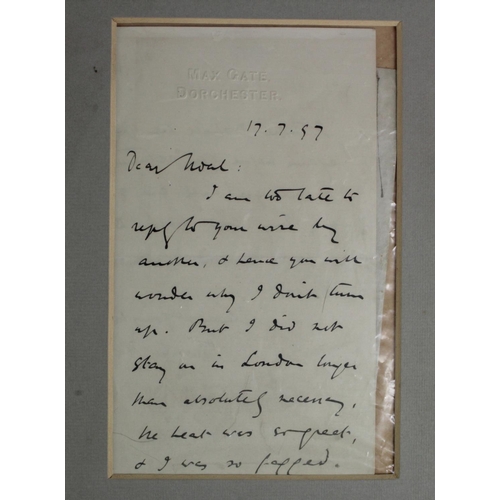 MAX GATE,
DORCHESTER.
17.7.97
Dear Noel:
I am too late to
reply to your wire by
another, & hence you will
wonder why I don't turn
up. But I did not
stay on in London longer
than absolutely necessary,
the heat was so great,
& I was so fagged.